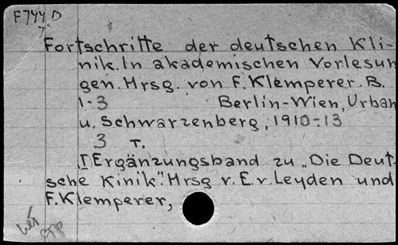 F744 D
7.
Fortschritte der deutschen Kli-
nik. In akademischen Vorlesun
gen. Hrsg. von F. Klemperer. B.
1-3 Berlin-Wien, Urban
u. Schwarzenberg, 1910-13
3 T.
I Ergänzungsband zu „Die Deut-
sche Kinik". Hrsg v. E. v. Leyden und
F. Klemperer,